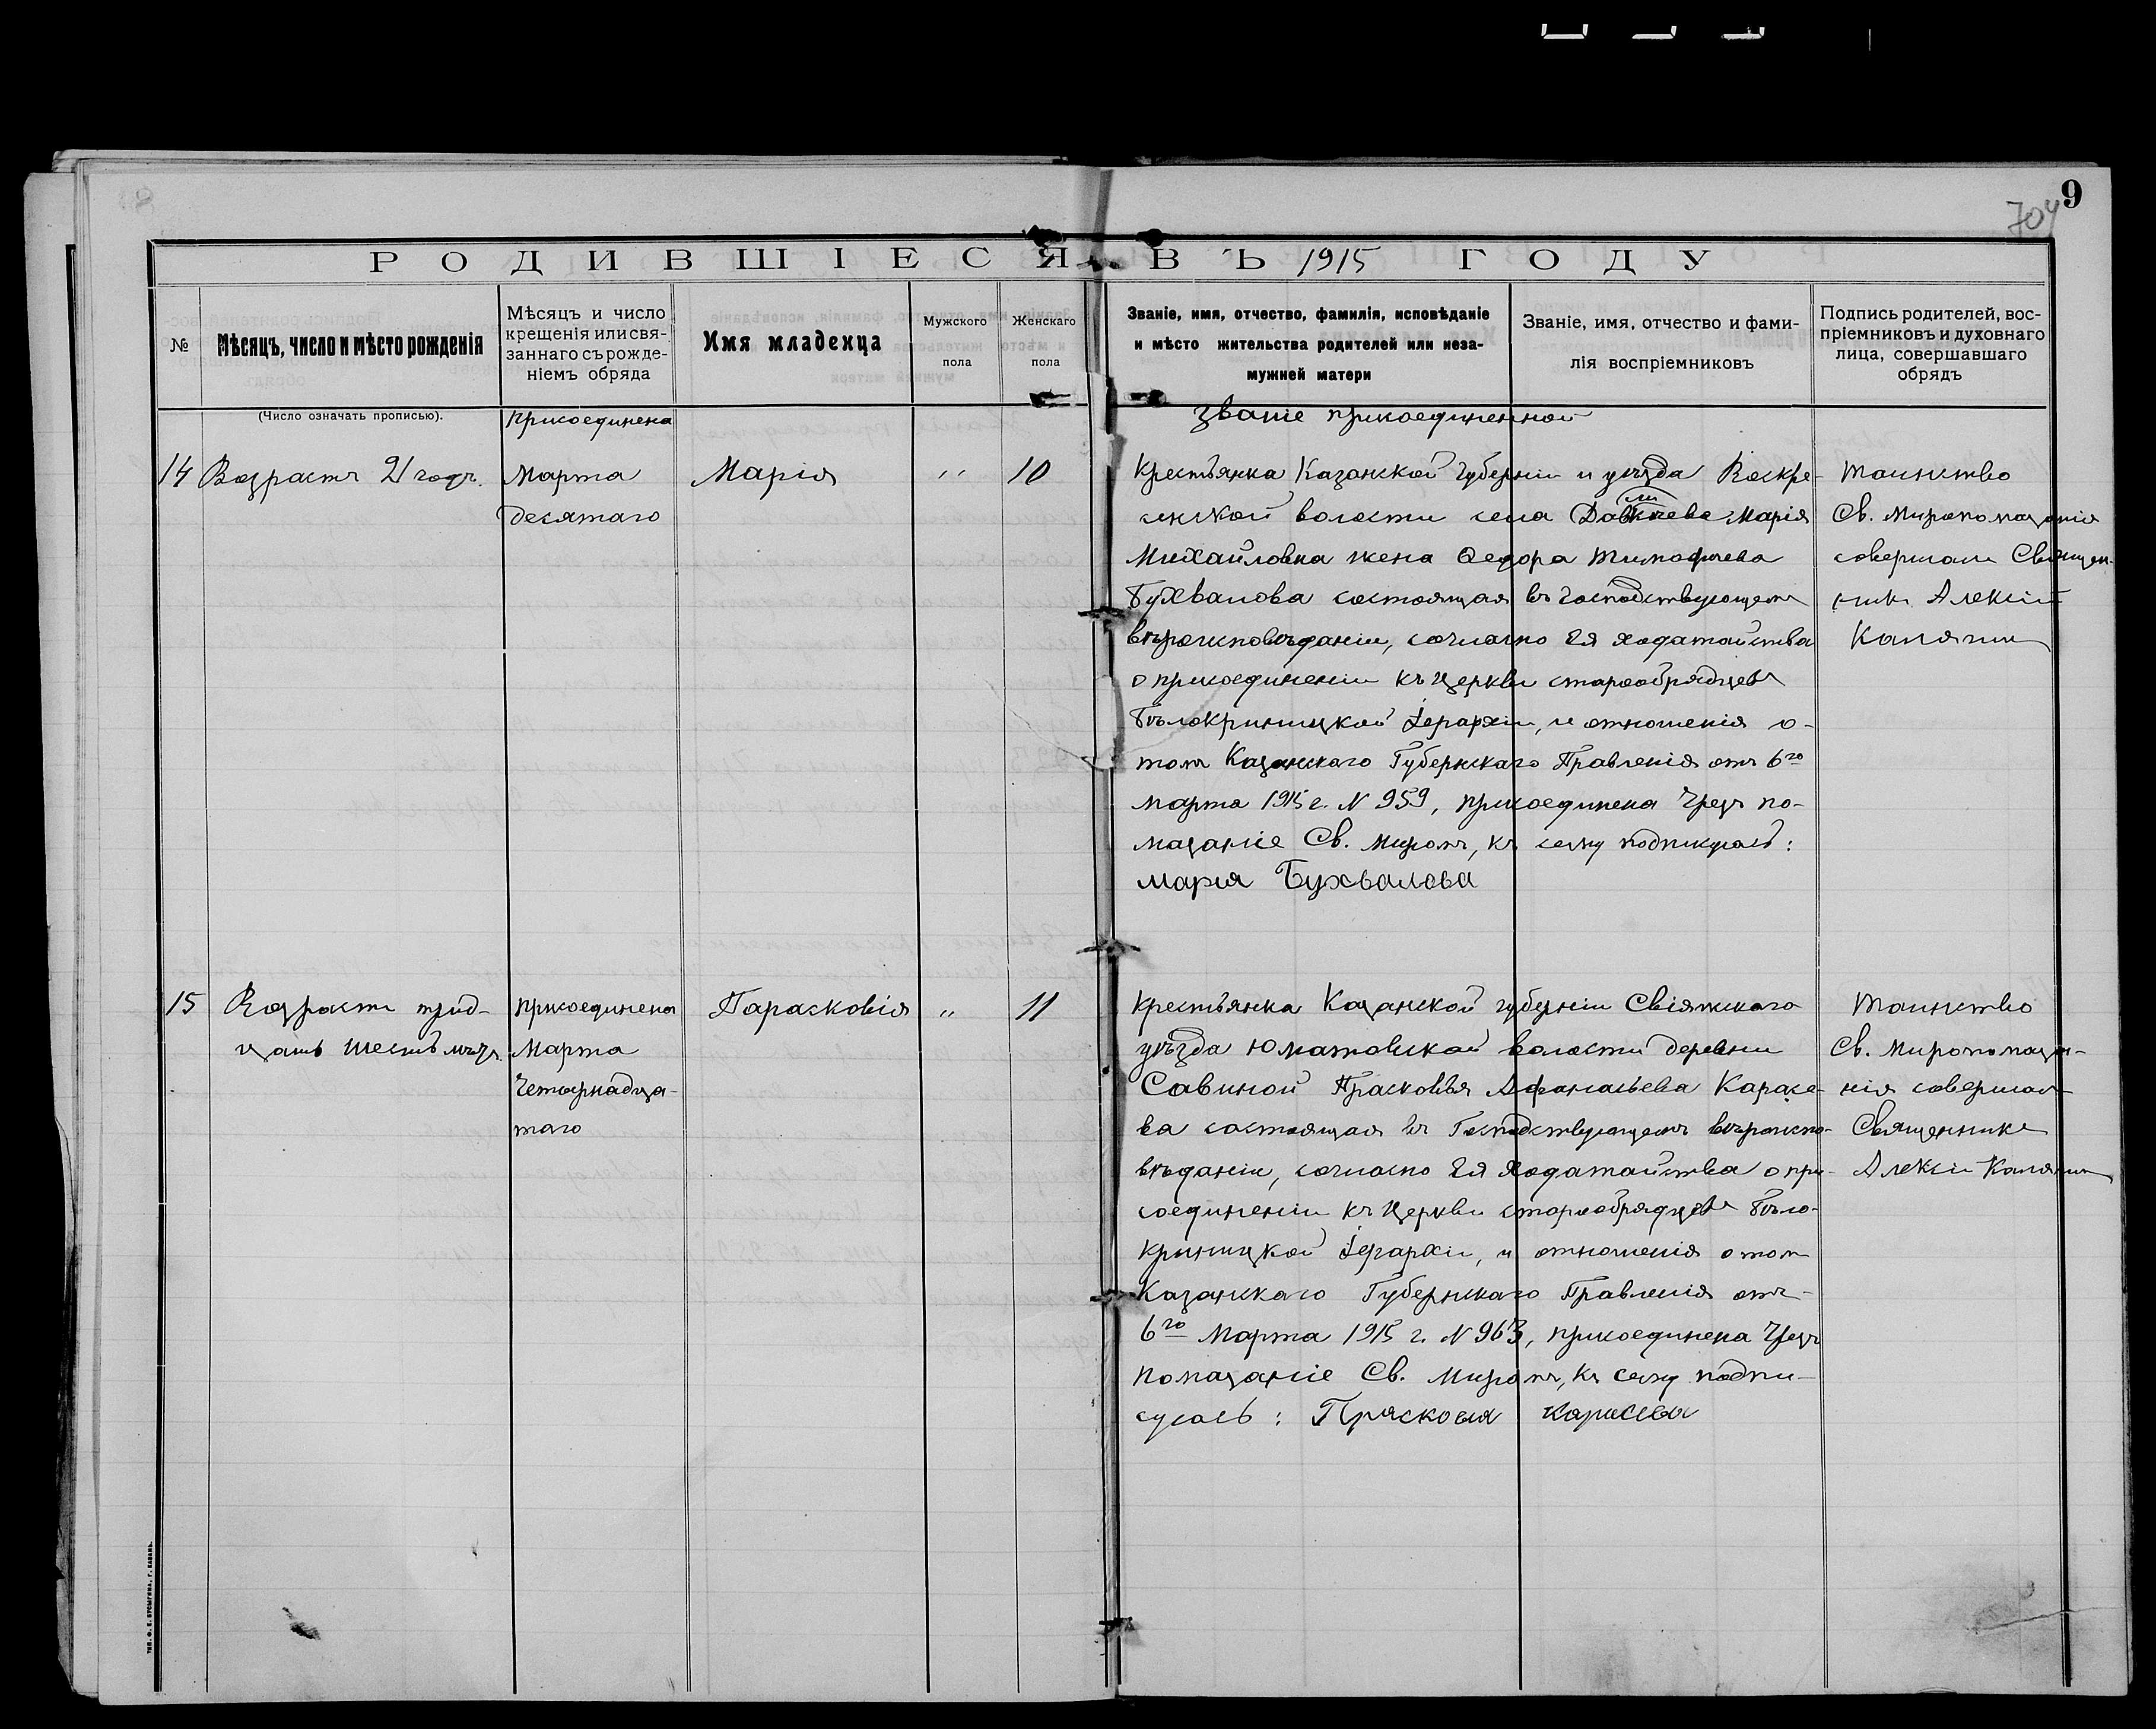 9
704
РОДИВШІЕСЯ ВЪ 1915 ГОДУ
№
Мѣсяцъ, число и мѣсто рожденія
Мѣсяцъ и число
крещенія или свя-
заннаго съ рожде-
ніемъ обряда
Имя младенца
Мужского
пола
Женскаго
пола
Званіе, имя, отчество, фамилія, исповѣданіе
и мѣсто жительства родителей или неза-
мужней матери
Званіе, имя, отчество и фами-
лія воспріемниковъ
Подпись родителей, вос-
пріемниковъ и духовнаго
лица, совершавшаго
обрядъ
(Число означать прописью).
присоединена
Званіе присоединенной
14
Возрастъ 21 годъ.
Марта
десятаго
Марія
"
10
Крестьянка Казанской Губерніи и уѣзда Воскре-
сенской волости села Марія
Михайловна жена Ѳедора Тимофѣева
Бухвалова состоящая въ Господствующемъ
вѣроисповѣданіи, согласно Ея ходатайства
о присоединеніи къ церкви старообрядцевъ
Бѣлокриницкой Іерархіи, и отношенія о-
томъ Казанскаго Губернскаго Правленія отъ 6го
марта 1915 г. N 959, присоединена чрезъ по-
мазаніе Св. миромъ, къ сему подписуюсь:
Мария Бухвалова
Таинство
Св. Миропомазанія
совершалъ Священ-
никъ Алексій
Калягин
15
Возрастъ трид-
цать шесть лѣтъ.
присоединена
Марта
Четырнадца-
таго
Парасковія
"
11
Крестьянка Казанской губерніи Свіяжскаго
уѣзда Юматовской волости деревни
Савиной Прасковья Афанасьева Карасе-
ва состоящая въ Господствующемъ вѣроиспо-
вѣданіи, согласно Ея ходатайства о при-
соединеніи къ церкви старообрядцевъ Бѣло-
криницкой Іерархіи, и отношенія о томъ
Казанскаго Губернскаго Правленія отъ
6го Марта 1915 г. N 963, присоединена чрезъ
помазаніе Св. Миромъ, къ сему подпи-
суюсь: Прасковя Карасева
Таинство
Св. Миропомаза-
нія совершалъ
Священникъ
Алексій Калягин
ТИП. Г. КАЗАНЬ.